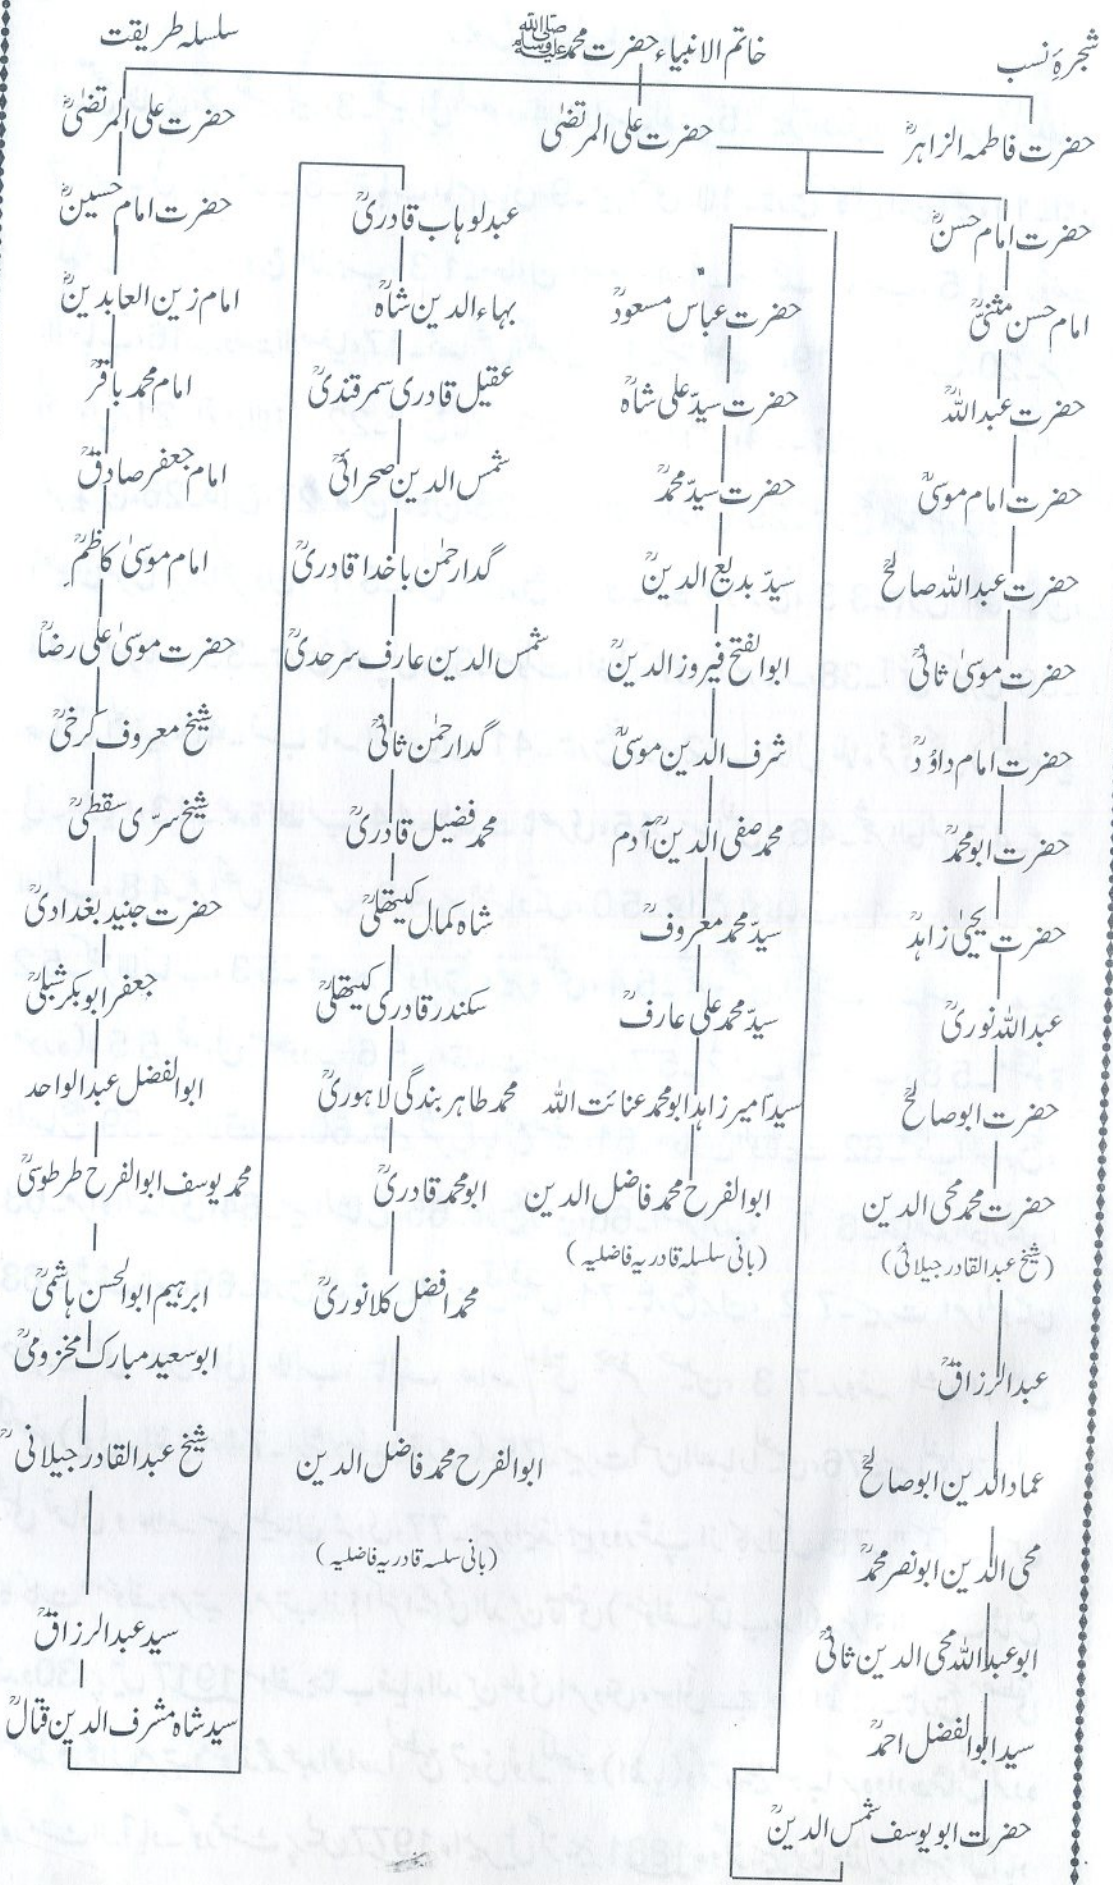 شجرۂ نسب
خاتم الانبیاء حضرت محمد ﷺ
سلسلہ طریقت
حضرت فاطمہ الزاہرؓ
حضرت علی المرتضیٰ
حضرت علی المرتضیٰؓ
حضرت امام حسنؓ
امام حسن مثنیٰؒ
حضرت عبداللہؒ
حضرت امام موسیٰؒ
حضرت عبداللہ صالحؒ
حضرت موسیٰ ثانیؒ
حضرت امام داؤدؒ
حضرت ابومحمدؒ
حضرت یحییٰ زاہدؒ
عبداللہ نوریؒ
حضرت ابوصالحؒ
حضرت محمد محی الدین
(شیخ عبدالقادر جیلانیؒ)
عبدالرزاقؒ
عمادالدین ابوصالحؒ
محی الدین ابونصر محمدؒ
ابوعبداللہ محی الدین ثانیؒ
سید ابوالفضل احمدؒ
حضرت ابو یوسف شمس الدینؒ
حضرت عباس مسعودؒ
حضرت سیدّ علی شاہؒ
حضرت سیدّ محمدؒ
سیدّ بدیع الدینؒ
ابوالفتح فیروز الدینؒ
شرف الدین موسیٰؒ
محمد صفی الدینؒ آدم
سیدّ محمد معروفؒ
سیدّ محمد علی عارفؒ
سیدّ امیر زاہد ابو محمد عنائت اللہ
ابوالفرح محمد فاضل الدین
(بانی سلسلہ قادریہ فاضلیہ)
عبدلوہاب قادریؒ
بہاء الدین شاہؒ
عقیل قادری سمرقندیؒ
شمس الدین صحرائیؒ
گدارحمٰن باخدا قادریؒ
شمس الدین عارف سرحدیؒ
گدارحمٰن ثانیؒ
محمد فضیل قادریؒ
شاہ کمال کیتھلیؒ
سکندر قادری کیتھلیؒ
محمد طاہر بندگی لاہوریؒ
ابو محمد قادریؒ
محمد افضل کلانوریؒ
ابوالفرح محمد فاضل الدین
(بانی سلسہ قادریہ فاضلیہ)
حضرت امام حسینؓ
امام زین العابدینؓ
امام محمد باقرؒ
امام جعفر صادقؒ
امام موسیٰ کاظمؒ
حضرت موسیٰ علی رضاؒ
شیخ معروف کرخیؒ
شیخ سرّی سقطیؒ
حضرت جنید بغدادیؒ
جعفر ابوبکر شبلیؒ
ابوالفضل عبدالواحد
محمد یوسف ابوالفرح طرطوسیؒ
ابرہیم ابوالحسن ہاشمیؒ
ابوسعید مبارک مخزومیؒ
شیخ عبدالقادر جیلانیؒ
سید عبدالرزاقؒ
سید شاہ مشرف الدین قتالؒ